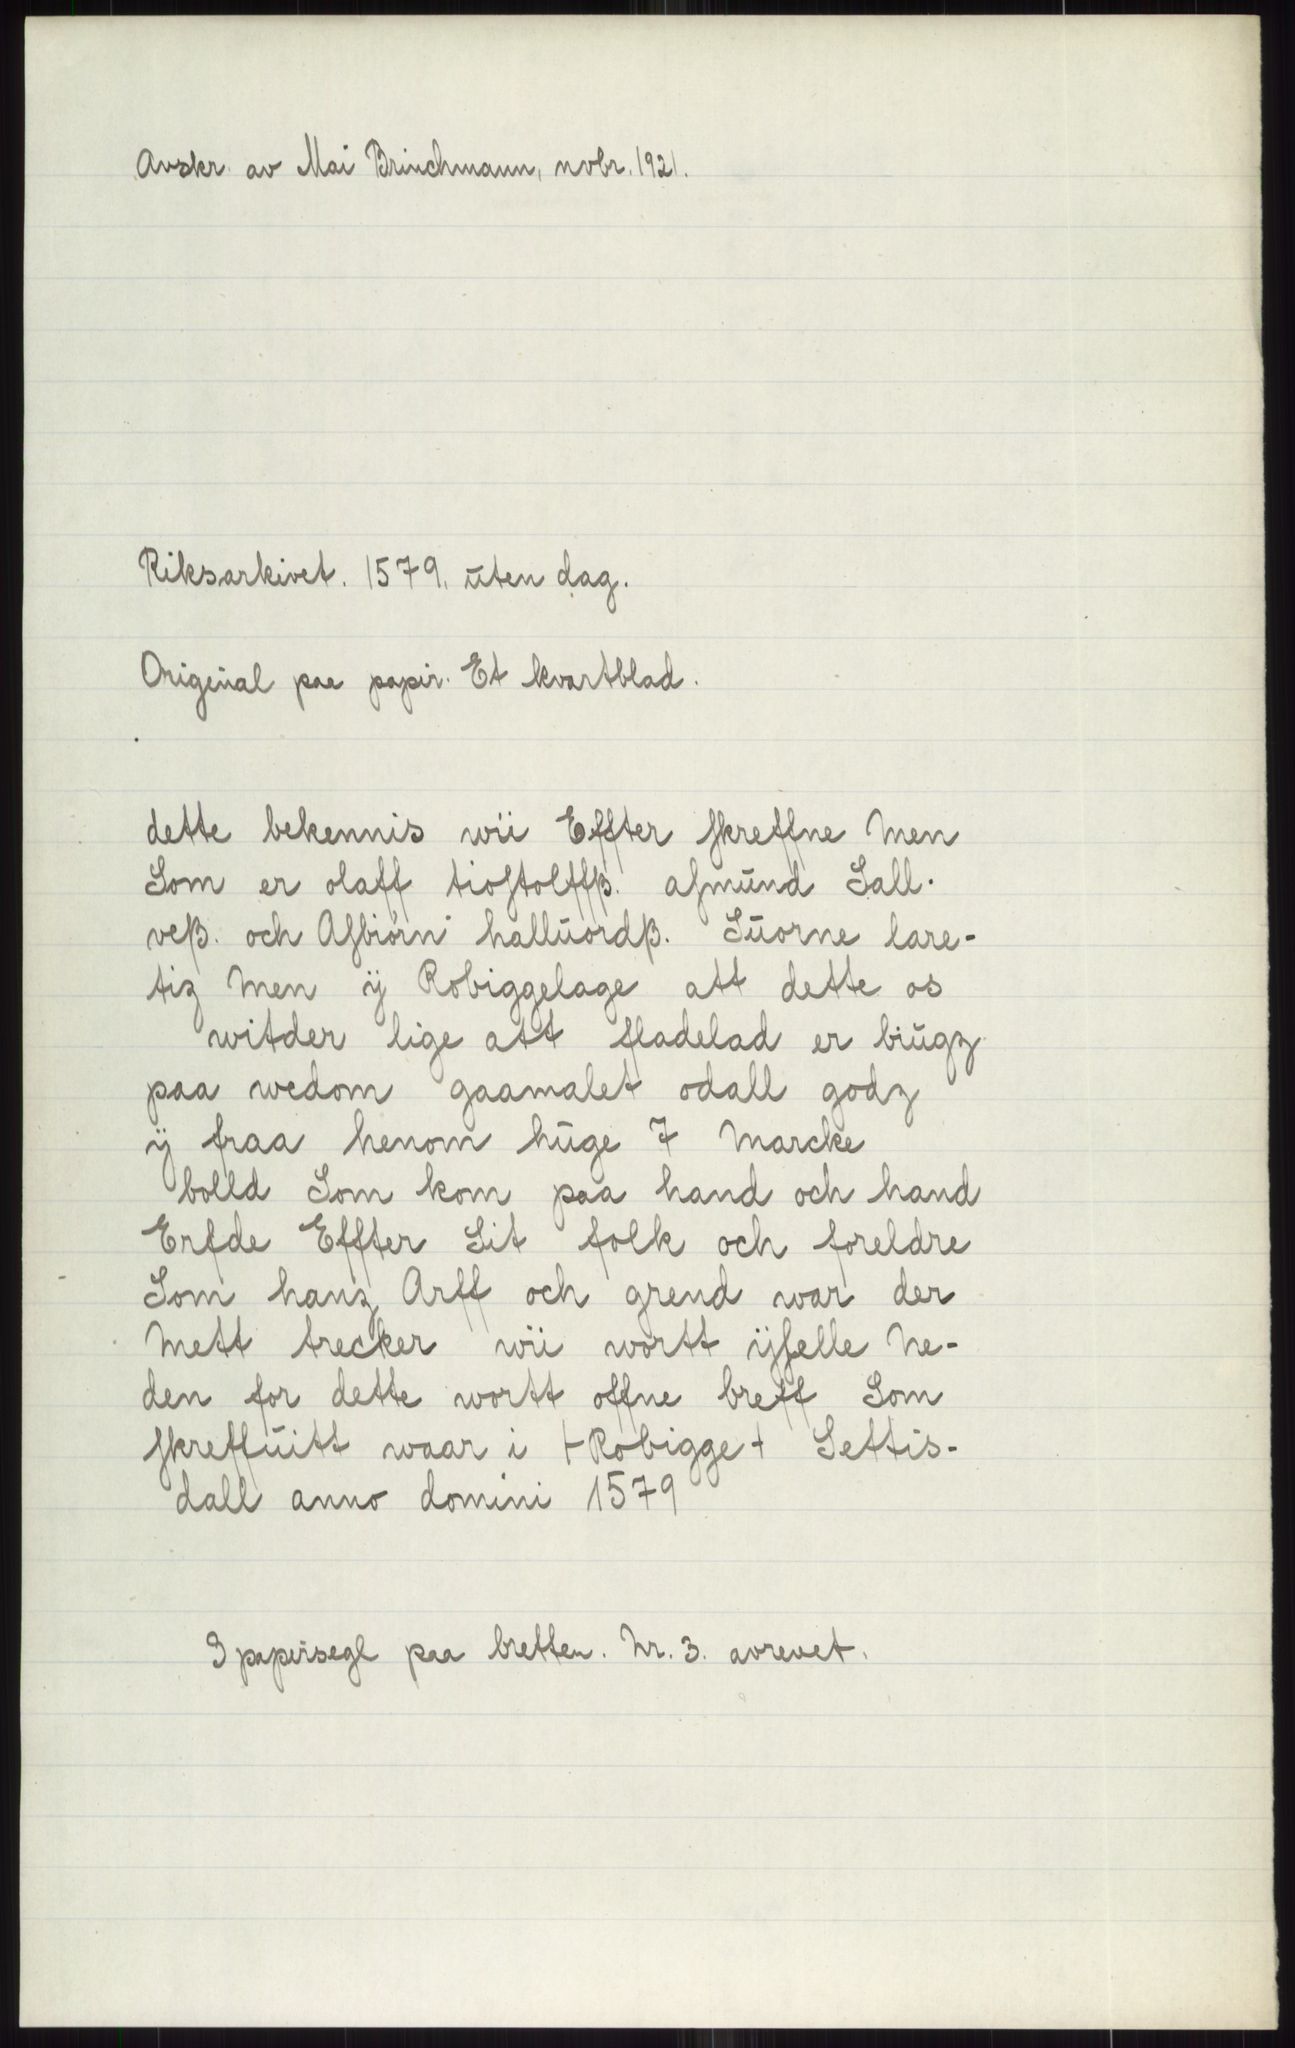 Avskr. av Mai Brinchmann, nvbr. 1921.
Riksarkivet. 1579. ūten dag.
Original paa papir. Et kvartblad.
dette bekennis wii Effter ſkreffne Men
Som er olaff tioſtolffß. aſmūnd Sall-
veß. och Aſbiørn hallūordß. Sūorne lare-
tiz Men ÿ Robiggelage att dette os
witder lige att fladelad er biūgz
paa wedom gaamalet odall godz
ÿ fraa henom hūge 7 Marcke
bolld Som kom paa hand och hand
Erfde Effter Sit folk och foreldre
Som hanz Arff och grend war der
Mett trecker wii wortt ÿſelle Ne-
den for dette wortt offne breff Som
ſkreffūitt waar i + Robigge + Settis-
dall anno domini 1579
3 papirsegl paa bretten. Nr. 3. avrevet.